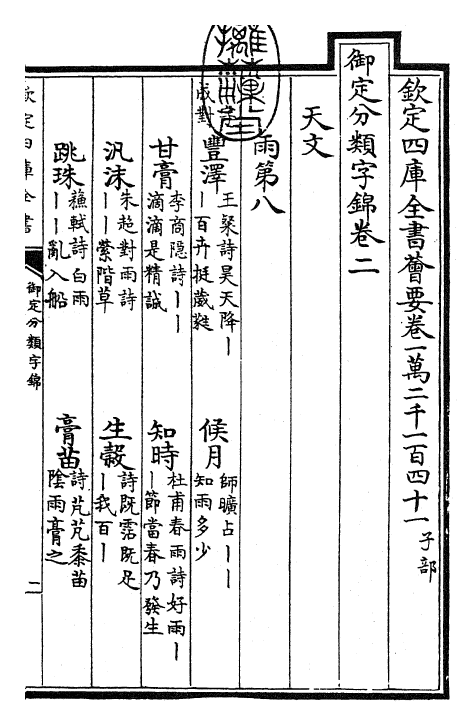 欽定四庫全書薈要卷一萬二千一百四十一 子部
御定分類字錦卷二
天文
雨第八
成對
豐澤 王粲詩昊天降丨
丨百卉挺葳蕤
候月 師曠占丨丨
知雨多少
甘膏 李商隠詩丨丨
滴滴是精誠
知時 杜甫春雨詩好雨丨
丨節當春乃發生
汎沫 朱超對雨詩
丨丨縈階草
生穀 詩既霑既足
丨我百丨
跳珠 蘇軾詩白雨
丨丨亂入船
膏苗 詩芃芃黍苗
陰雨膏之
欽定四庫全書
御定分類字錦
二